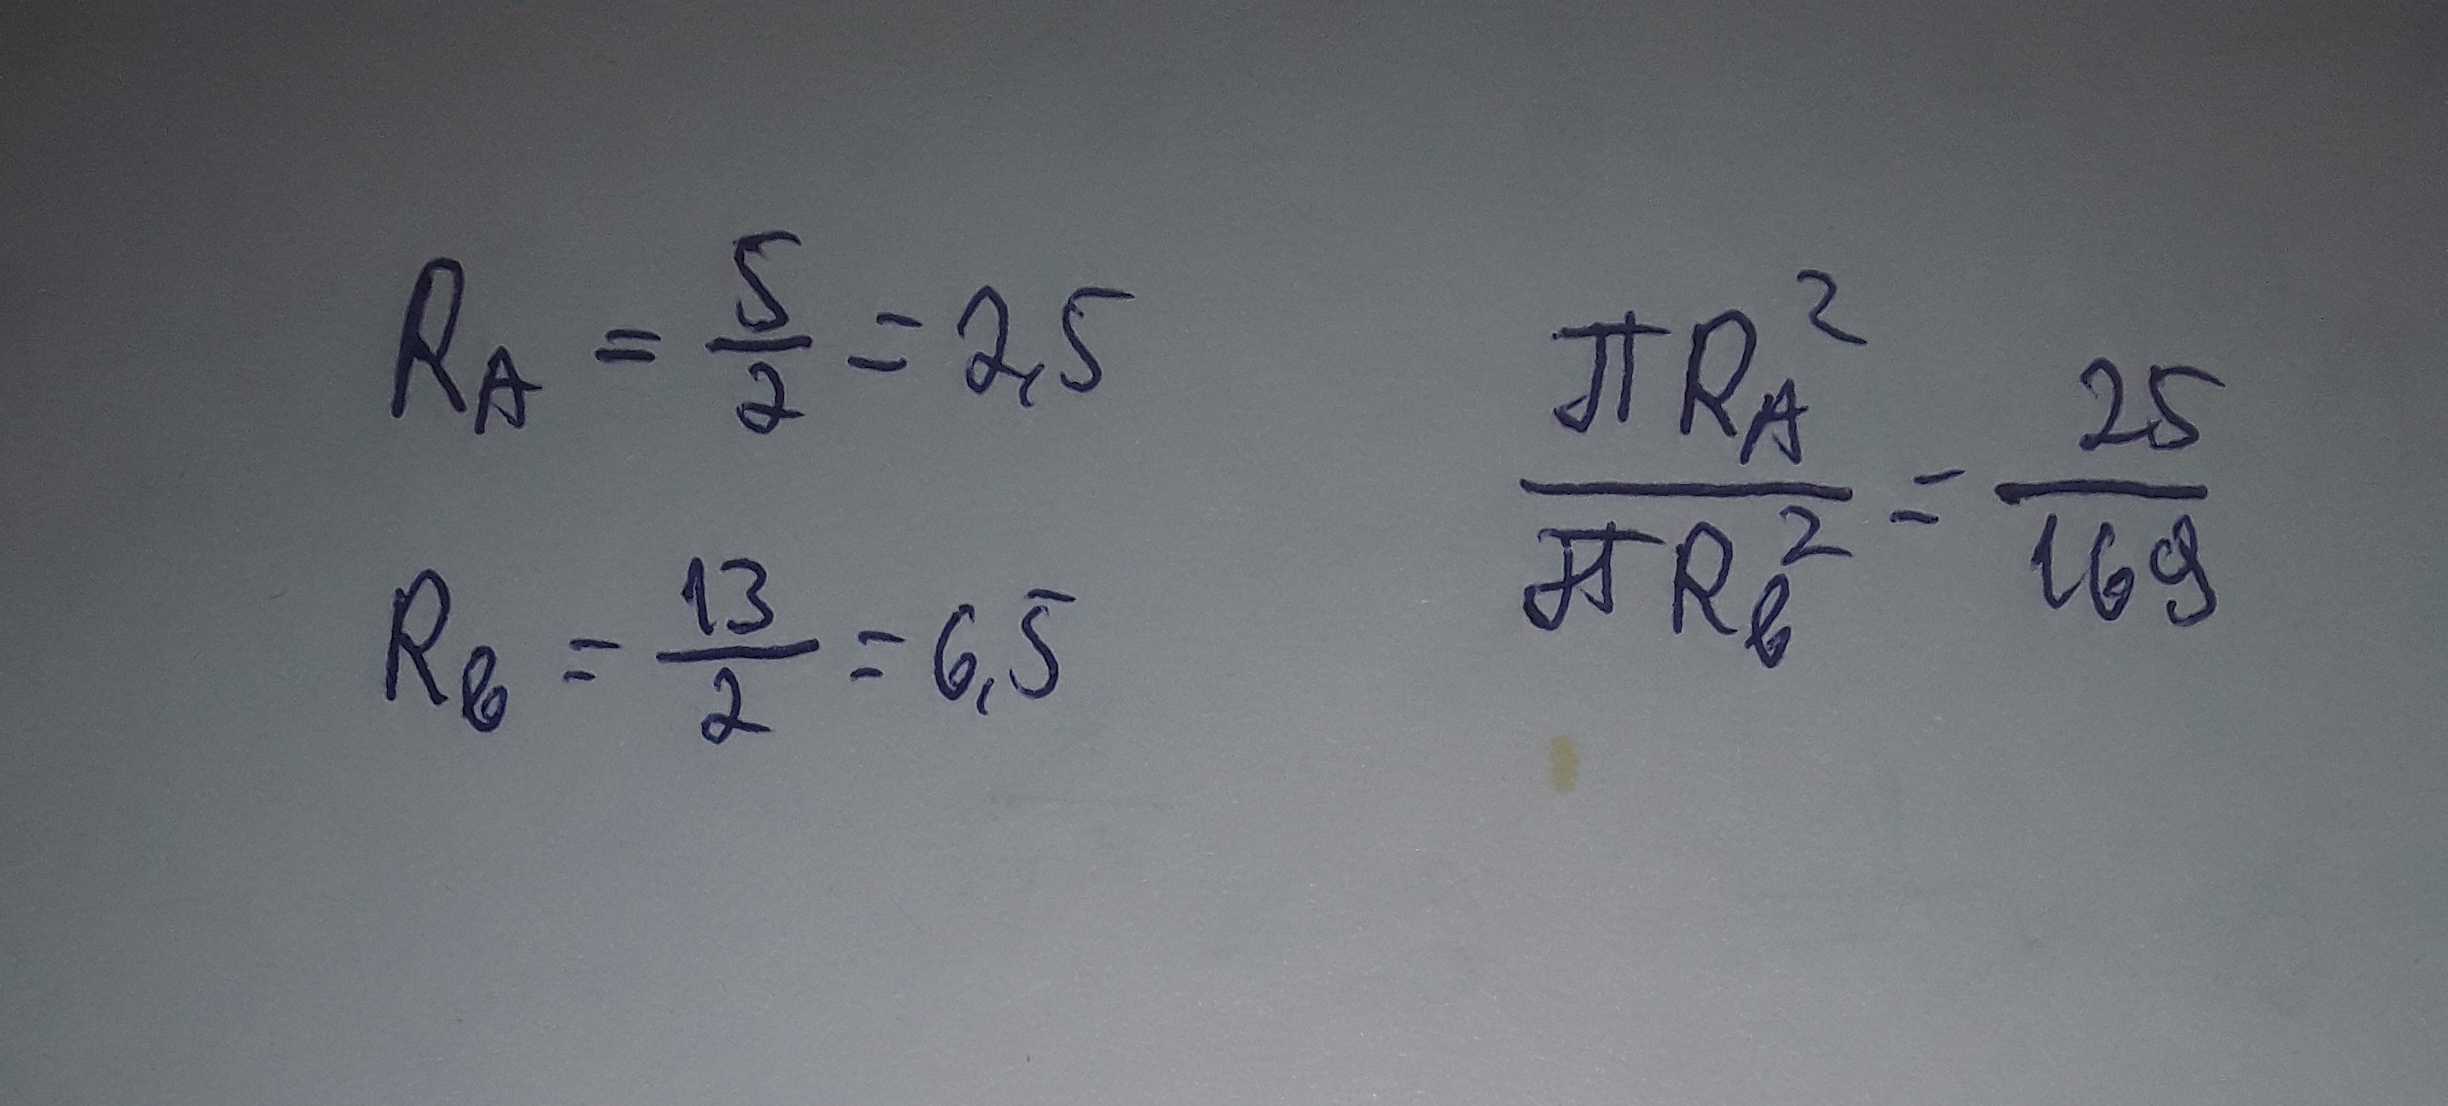 R_A = 5/2 = 2,5
R_b = 13/2 = 6,5
πR_A² / πR_b² = 25/169